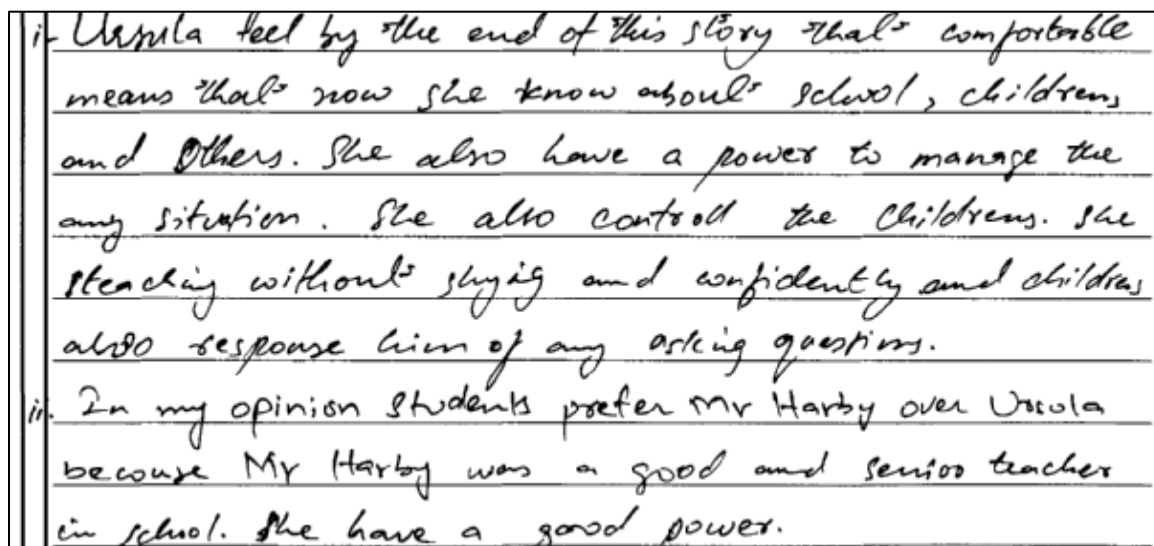 i- Ursula feel by the end of this story that comfortable
means that now she know about school, childrens,
and Others. She also have a power to manage the
any situation. She also controll the childrens. She
steaching without shying and confidently and childrens
also response him of any asking questions.
ii. In my opinion students prefer Mr Harby over Ursula
becouse Mr Harby was a good and senior teacher
in school. She have a good power.